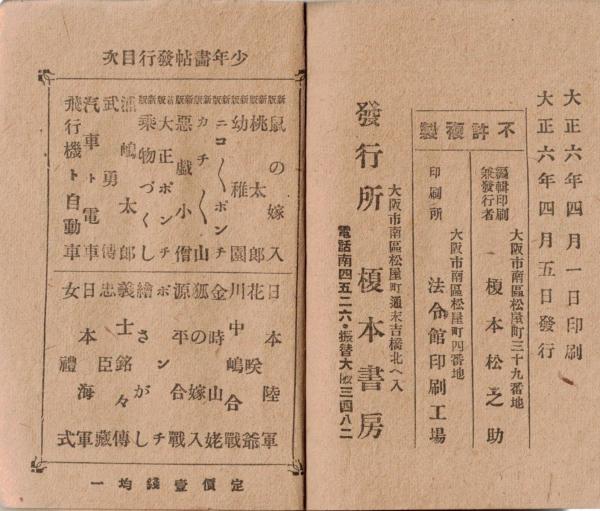 大正六年四月一日印刷
大正六年四月五日發行
不許複製
編輯印刷
兼發行者
大阪市南區松屋町三十九番地
榎本松之助
大阪市南區松屋町四番地
印刷所 法令館印刷工場
大阪市南區松屋町通末吉橋北ヘ入
發行所 榎本書房
電話南四五二六・振替大阪三四八二
少年畵帖發行目次
新版 鼠の嫁入
新版 桃太郎
新版 幼稚園
新版 ニコ〱ポンチ
新版 カチ〱山
新版 惡戲小僧
新版 大正ポンチ
新版 乘物づくし
浦嶋太郎
武勇傳
汽車ト電車
飛行機ト自動車
日本陸軍
花咲爺
川中嶋合戰
金時山姥
狐の嫁入
源平合戰
ポンチ
繪さがし
義士銘々傳
忠臣藏
日本海軍
女禮式
定價壹錢均一